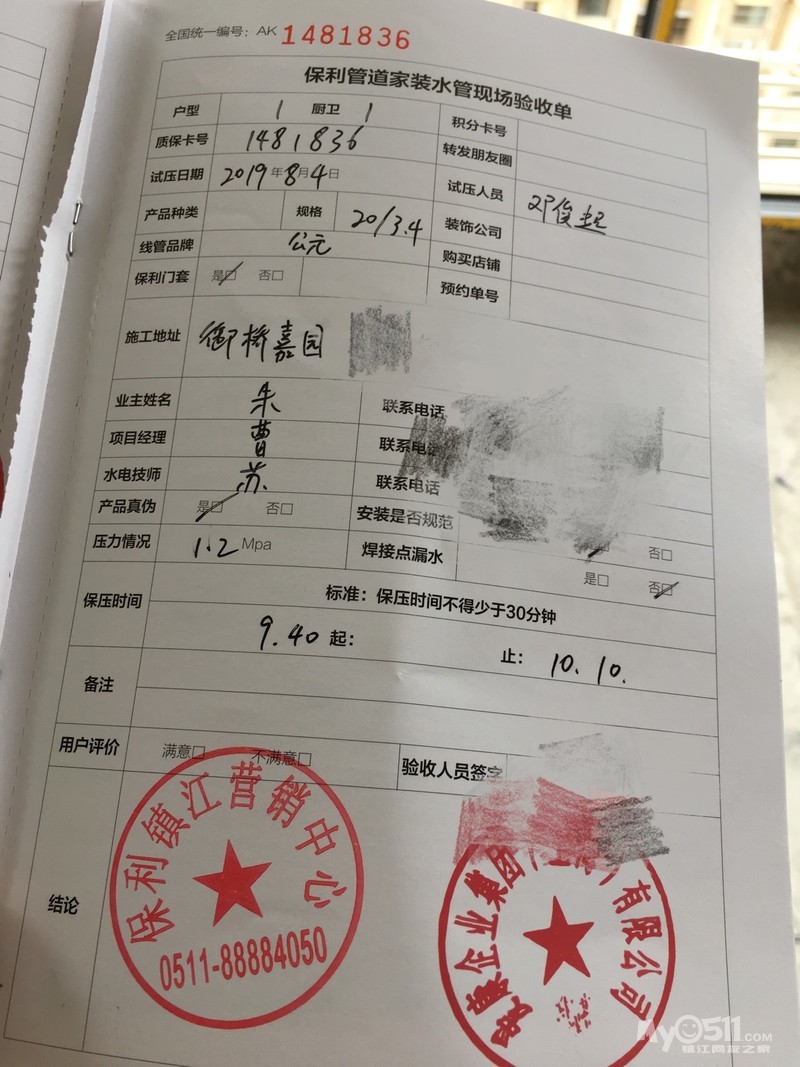 全国统一编号：AK 1481836
保利管道家装水管现场验收单
户型 1 厨卫 1 积分卡号
质保卡号 1481836 转发朋友圈
试压日期 2019年8月4日 试压人员 邓俊
产品种类 规格 20/3.4 装饰公司
线管品牌 公元 购买店铺
保利门套 是□ 否□ 预约单号
施工地址 御桥嘉园
业主姓名 朱 联系电话
项目经理 曹 联系电话
水电技师 苏 联系电话
产品真伪 是□ 否□ 安装是否规范 否□
压力情况 1.2 Mpa 焊接点漏水 是□ 否□
保压时间 标准：保压时间不得少于30分钟
9.40 起： 止： 10.10.
备注
用户评价 满意□ 不满意□ 验收人员签字
结论
保利镇江营销中心
0511-88884050
企业集团 有限公司
My0511.COM
镇江网友之家